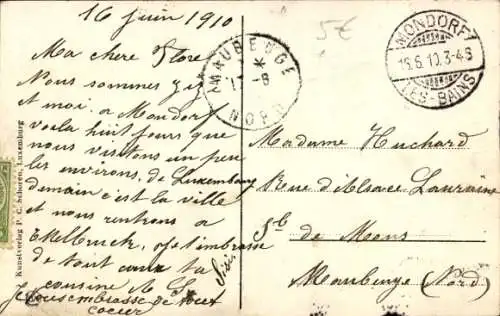 16 Juin 1910
Ma chere Flore
Nous sommes
et moi a Mondorf
voila huit jours que
nous visitons un peu
les environs, de Luxembourg
demain c'est la ville
et nous rentrons a
je t'embrasse
de tout coeur ta
cousine
Sisi
Je
de tout
coeur
MAUBEUGE
NORD
5€
MONDORF
15.6.10.3-4S
LES-BAINS
Madame Huchard
Rue d'Alsace Lorraine
de Mons
Maubeuge (Nord)
Kunstverlag P. C. Schoren, Luxemburg